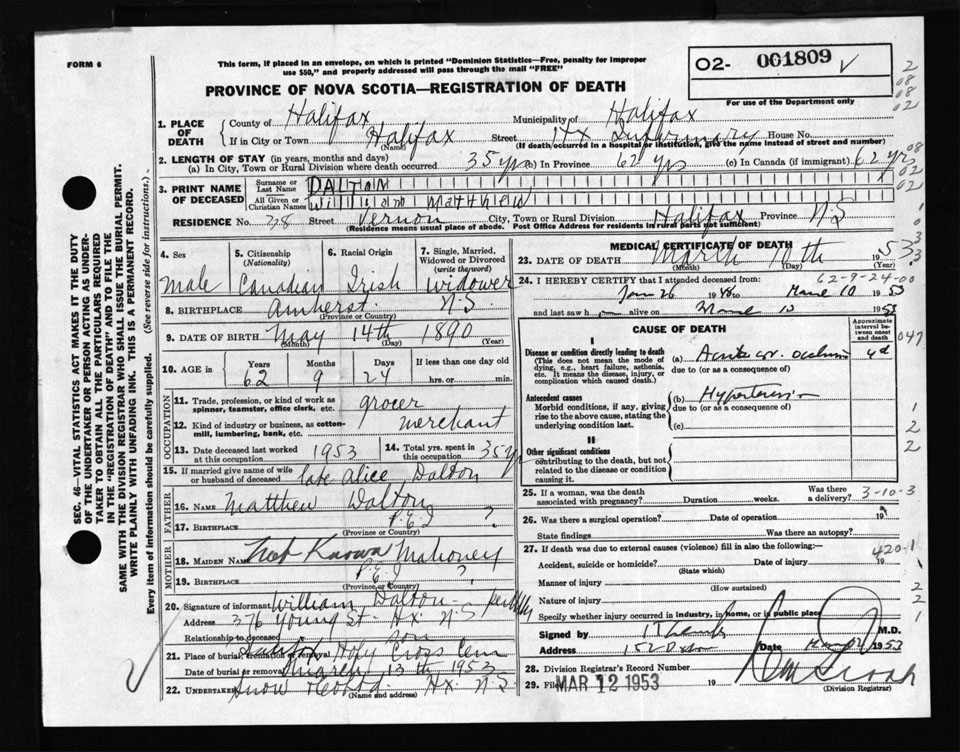 FORM 6
This form, if placed in an envelope, on which is printed "Dominion Statistics—Free, penalty for improper
use $50," and properly addressed will pass through the mail "FREE"
02- 001809 ✓
For use of the Department only
PROVINCE OF NOVA SCOTIA—REGISTRATION OF DEATH
1. PLACE OF DEATH { County of Halifax Municipality of Halifax
If in City or Town Halifax (Name) Street Hx Infirmary House No.
(If death occurred in a hospital or institution, give the name instead of street and number)
2. LENGTH OF STAY (in years, months and days)
(a) In City, Town or Rural Division where death occurred 35 yrs (b) In Province 62 yrs (c) In Canada (if immigrant) 62 yrs
3. PRINT NAME OF DECEASED { Surname or Last Name DALTON
All Given or Christian Names William Matthew
RESIDENCE No. 278 Street Vernon City, Town or Rural Division Halifax Province N.S
(Residence means usual place of abode. Post Office Address for residents in rural parts not sufficient)
4. Sex male
5. Citizenship (Nationality) Canadian
6. Racial Origin Irish
7. Single, Married, Widowed or Divorced (write the word) widower
8. BIRTHPLACE Amherst N.S. (Province or Country)
9. DATE OF BIRTH May (Month) 14th (Day) 1890 (Year)
10. AGE in { Years 62 Months 9 Days 24 If less than one day old hrs. or min.
OCCUPATION
11. Trade, profession, or kind of work as spinner, teamster, office clerk, etc. grocer
12. Kind of industry or business, as cotton-mill, lumbering, bank, etc. merchant
13. Date deceased last worked at this occupation 1953
14. Total yrs. spent in this occupation 35 yr
15. If married give name of wife or husband of deceased late Alice Dalton
FATHER
16. Name Matthew Dalton
17. Birthplace P.E.I ? (Province or Country)
MOTHER
18. MAIDEN NAME Not Known Mahoney
19. BIRTHPLACE P.E.I ? (Province or Country)
20. Signature of informant William Dalton
Address 376 Young St. Hx N.S
Relationship to deceased son
21. Place of burial, cremation or removal Holy Cross Cem
Date of burial or removal March 13th 1953
22. UNDERTAKER Snow Hx. N.S (Name and address)
MEDICAL CERTIFICATE OF DEATH
23. DATE OF DEATH March (Month) 10th (Day) 1953 (Year)
62-9-24-00
24. I HEREBY CERTIFY that I attended deceased from:
Jan 26 1948 to March 10 1953
and last saw h alive on March 10 1953
CAUSE OF DEATH
Approximate interval between onset and death
I
Disease or condition directly leading to death (a) Acute 4d
(This does not mean the mode of dying, e.g., heart failure, asthenia, etc. It means the disease, injury, or complication which caused death.) due to (or as a consequence of)
Antecedent causes (b) Hypertension
Morbid conditions, if any, giving rise to the above cause, stating the underlying condition last. due to (or as a consequence of)
(c)
II
Other significant conditions
contributing to the death, but not related to the disease or condition causing it.
25. If a woman, was the death associated with pregnancy? Duration weeks. Was there a delivery? 3-10-3
26. Was there a surgical operation? Date of operation 19
State findings Was there an autopsy?
27. If death was due to external causes (violence) fill in also the following:— 420-1
Accident, suicide or homicide? (State which) Date of injury 19
Manner of injury (How sustained)
Nature of injury
Specify whether injury occurred in industry, in home, or in public place
Signed by M.D.
Address Date 1953
28. Division Registrar's Record Number
29. Filed MAR 12 1953 19 (Division Registrar)
SEC. 46—VITAL STATISTICS ACT MAKES IT THE DUTY
OF THE UNDERTAKER OR PERSON ACTING AS UNDER-
TAKER TO OBTAIN ALL THE PARTICULARS REQUIRED
IN THE "REGISTRATION OF DEATH" AND TO FILE THE
SAME WITH THE DIVISION REGISTRAR WHO SHALL ISSUE THE BURIAL PERMIT.
WRITE PLAINLY WITH UNFADING INK. THIS IS A PERMANENT RECORD.
Every item of information should be carefully supplied. (See reverse side for instructions.)